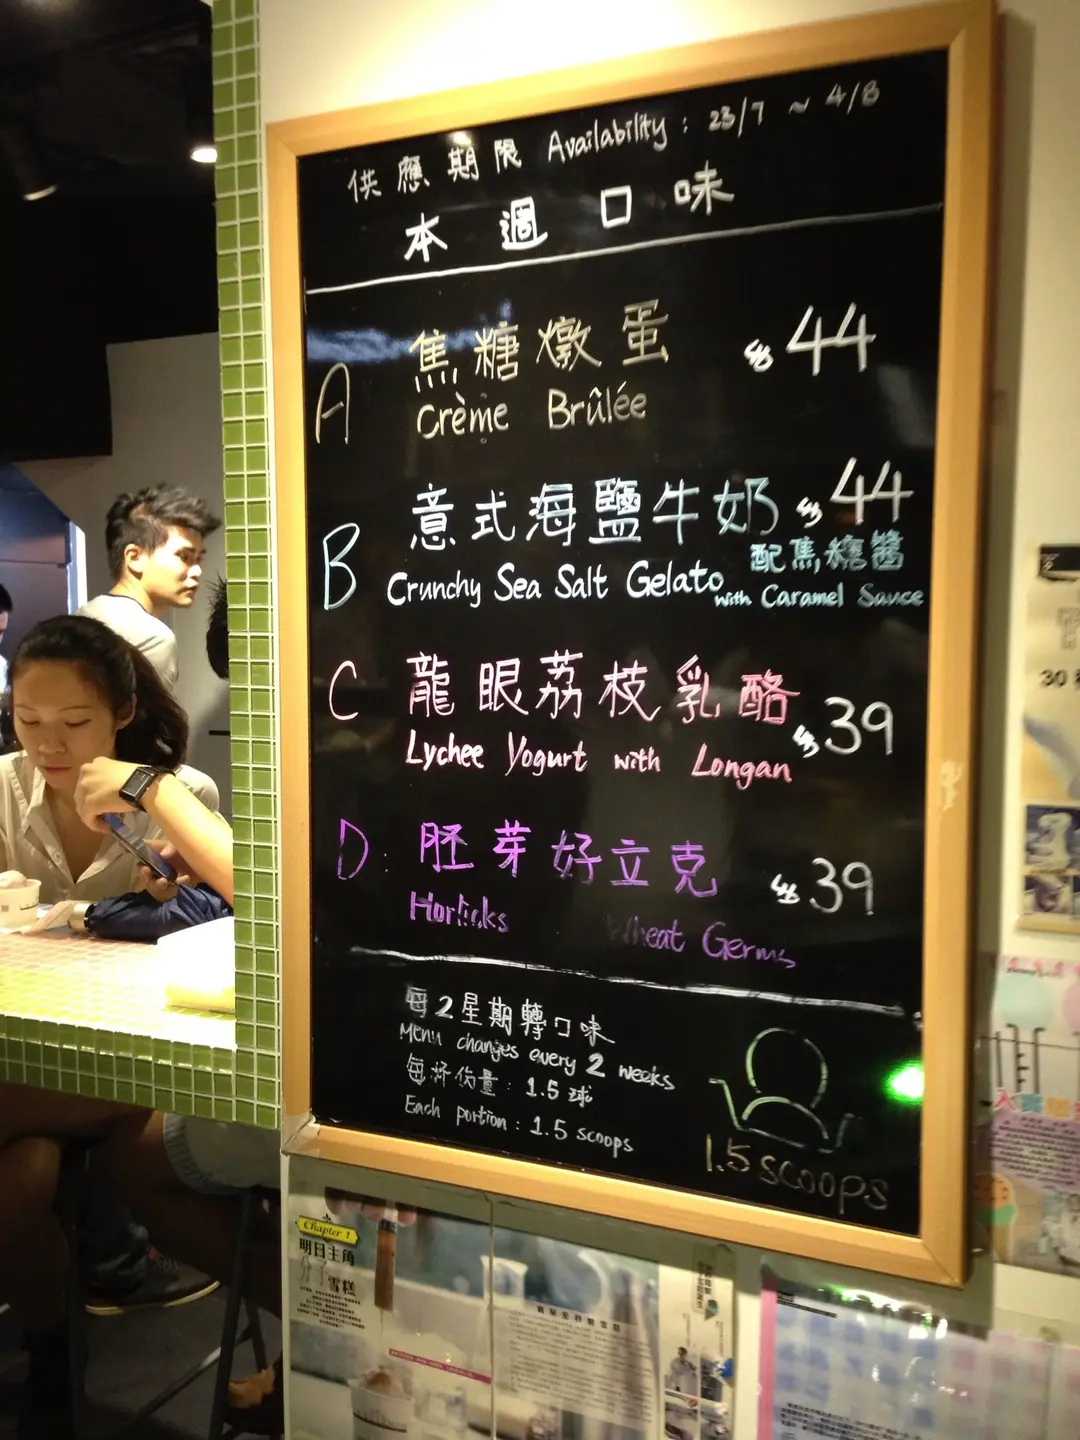 供應期限 Availability : 23/7 ~ 4/8
本週口味
A 焦糖燉蛋 $44
Crème Brûlée
B 意式海鹽牛奶 $44
配焦糖醬
Crunchy Sea Salt Gelato with Caramel Sauce
C 龍眼荔枝乳酪 $39
Lychee Yogurt with Longan
D : 胚芽好立克 $39
Horlicks Wheat Germs
每2星期轉口味
Menu changes every 2 weeks
每杯份量 : 1.5 球
Each portion : 1.5 scoops
1.5 scoops
Chapter 1
明日主角
分子雪糕
30